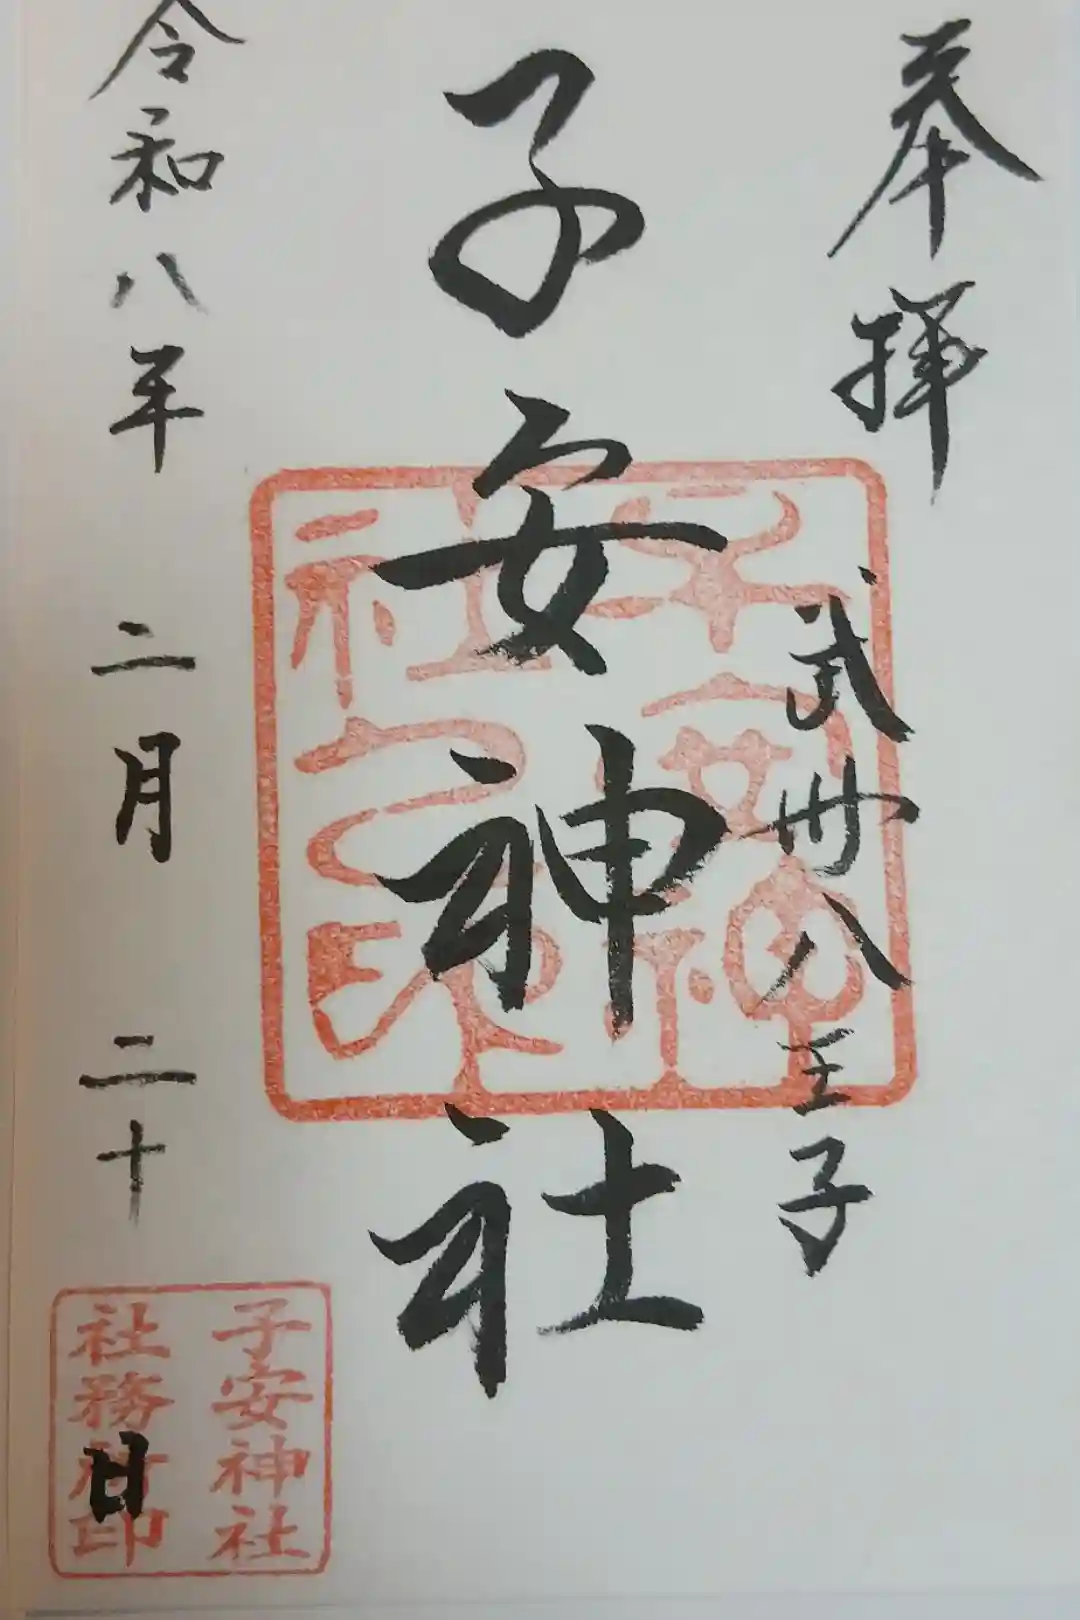 奉拝
武州八王子
子安神社
子安神
社之印
令和八年二月二十日
子安神社
社務所印